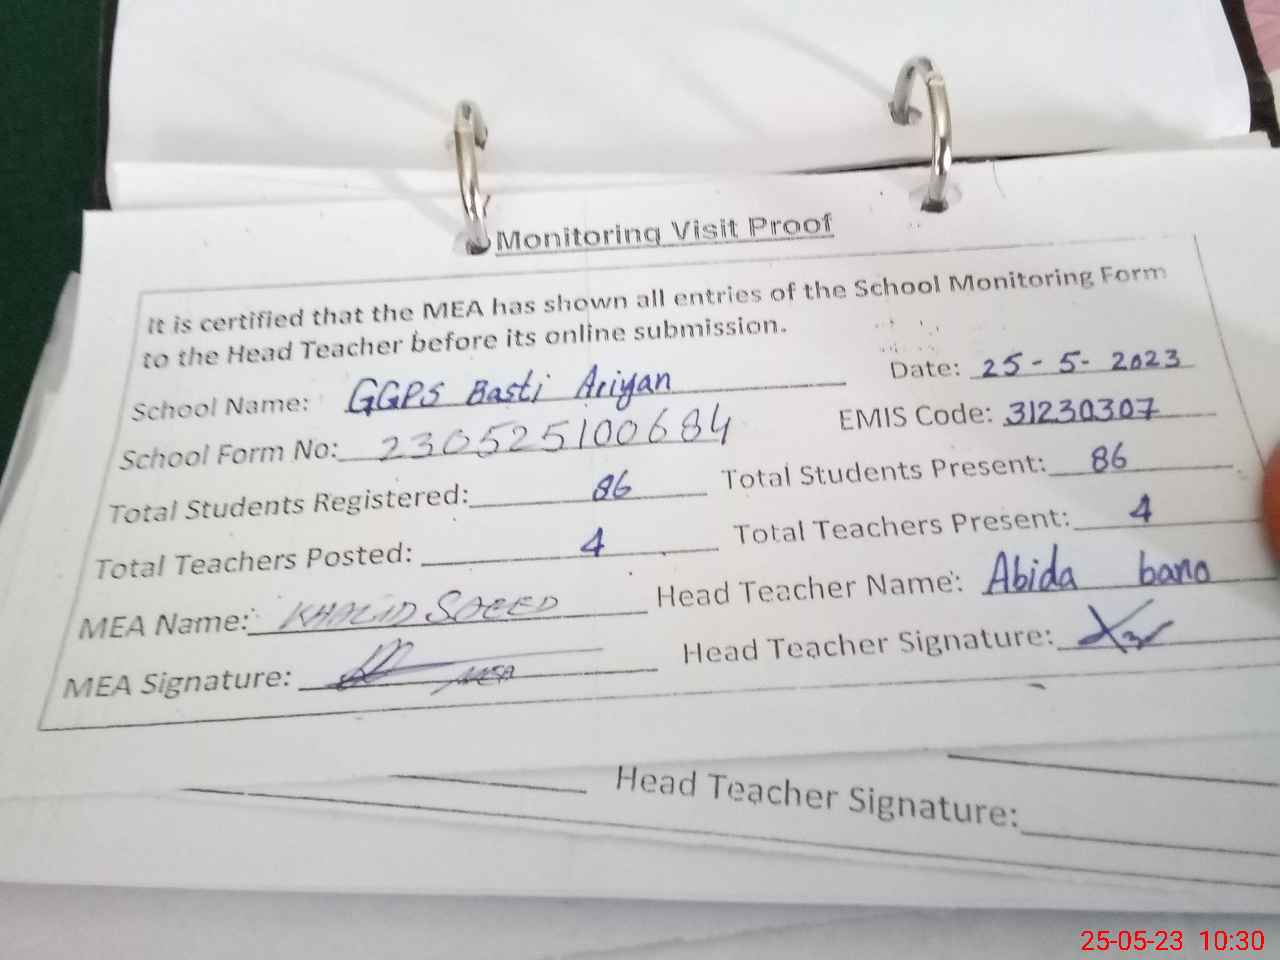 Monitoring Visit Proof
It is certified that the MEA has shown all entries of the School Monitoring Form
to the Head Teacher before its online submission.
School Name: GGPS Basti Ariyan Date: 25-5-2023
School Form No: 230525100684 EMIS Code: 31230307
Total Students Registered: 86 Total Students Present: 86
Total Teachers Posted: 4 Total Teachers Present: 4
MEA Name: KHALID SAEED Head Teacher Name: Abida bano
MEA Signature: MEA Head Teacher Signature:
Head Teacher Signature:
25-05-23 10:30